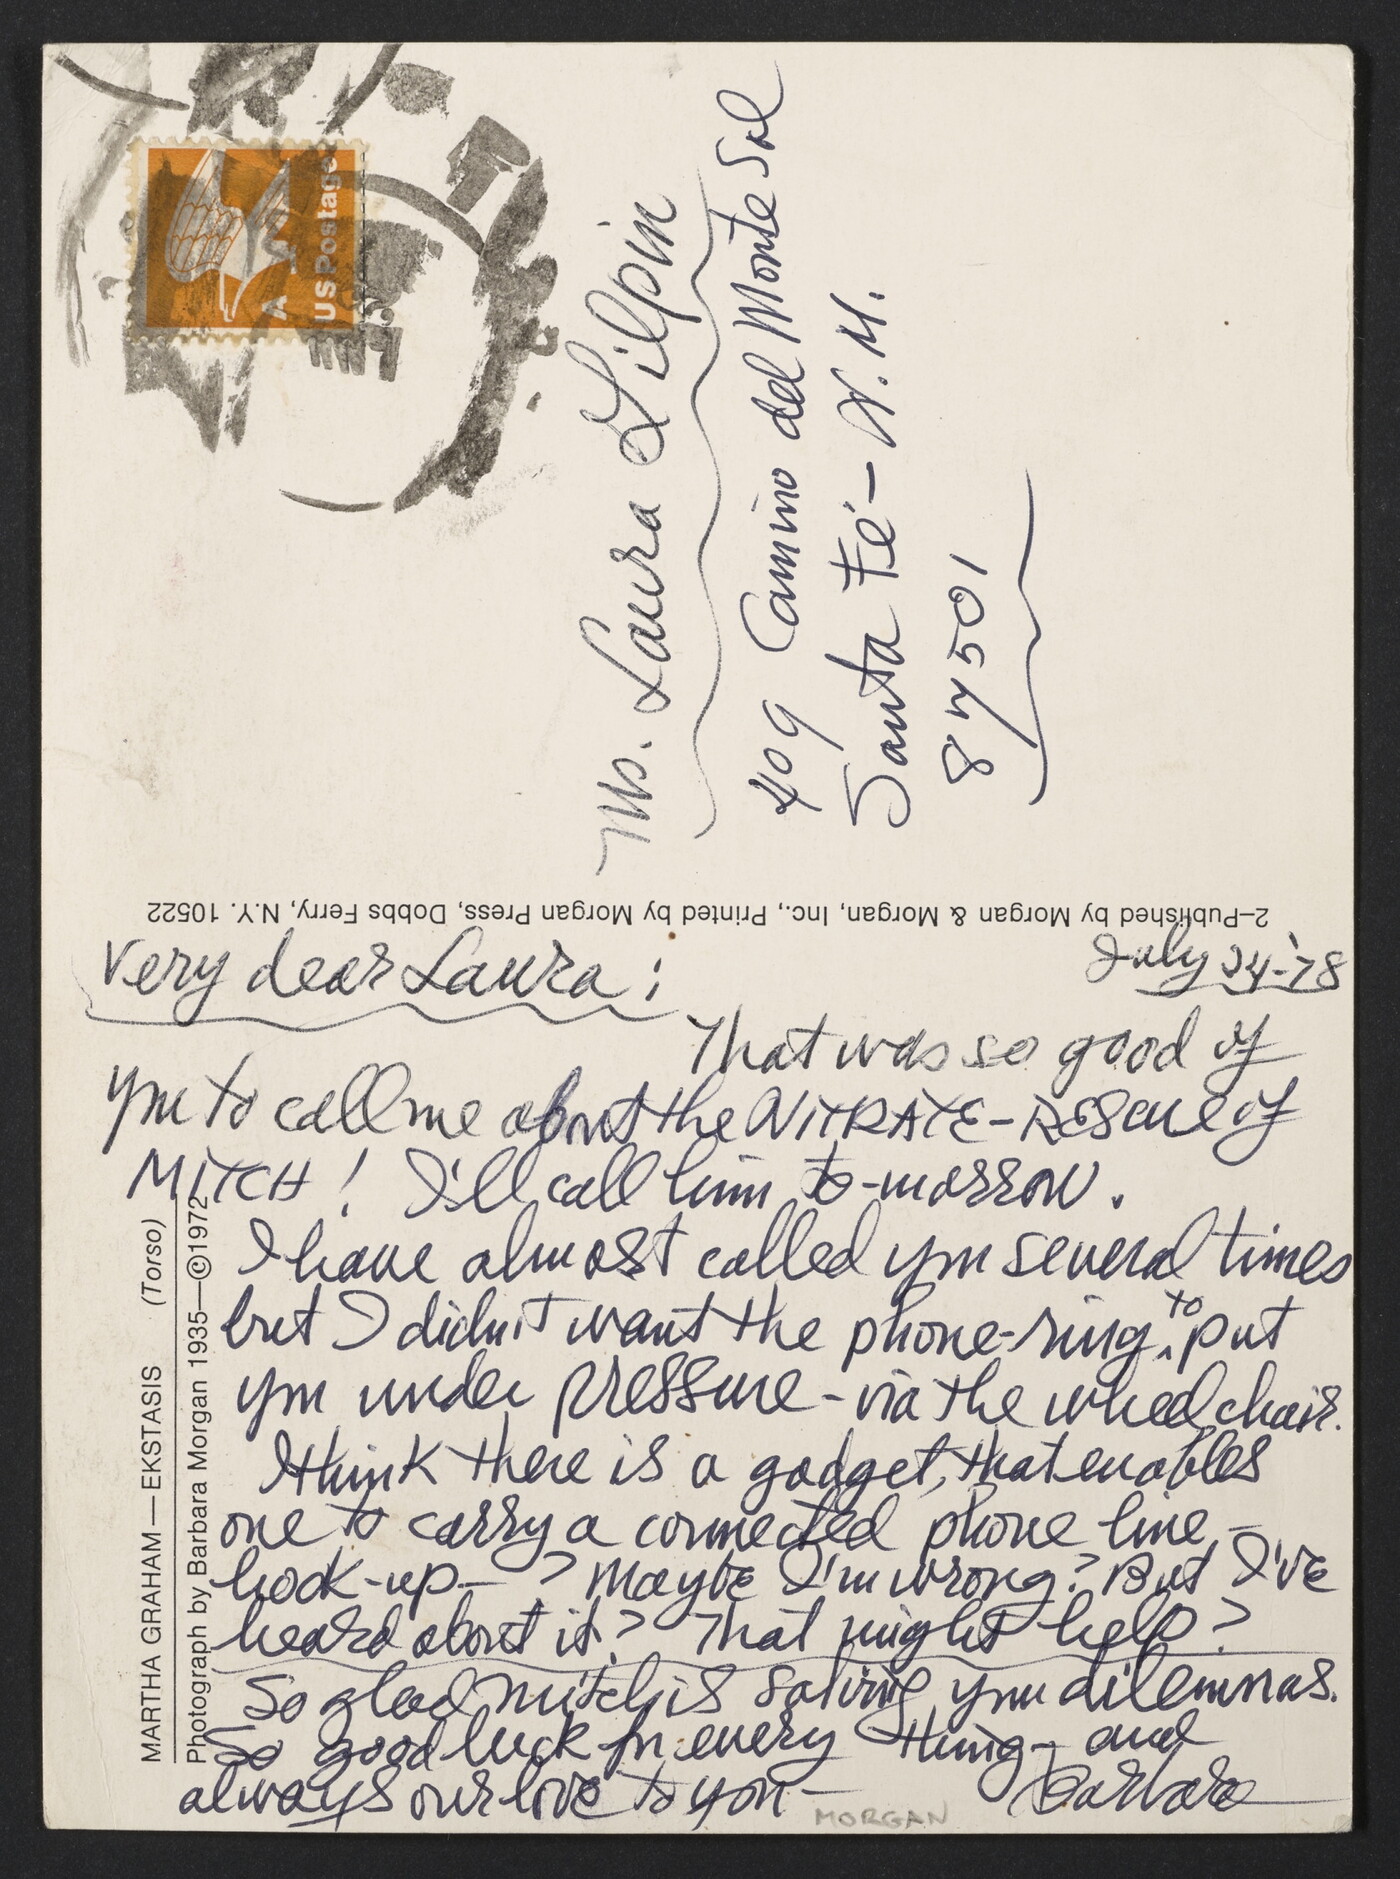 A
US Postage
Ms. Laura Gilpin
409 Camino del Monte Sol
Santa Fé - N.M.
87501
2-Published by Morgan & Morgan, Inc., Printed by Morgan Press, Dobbs Ferry, N.Y. 10522
MARTHA GRAHAM—EKSTASIS (Torso)
Photograph by Barbara Morgan 1935—©1972
July 24-'78
Very dear Laura:
That was so good of
you to call me about the NITRATE-RESCUE of
MITCH! I'll call him to-morrow.
I have almost called you several times
but I didn't want the phone-ring, to put
you under pressure - via the wheel chair.
I think there is a gadget, that enables
one to carry a connected phone line -
hook-up - ? Maybe I'm wrong? But I've
heard about it? That might help?
So glad Mitch is solving your dilemmas.
So good luck for every thing - and
always our love to you - Barbara
MORGAN